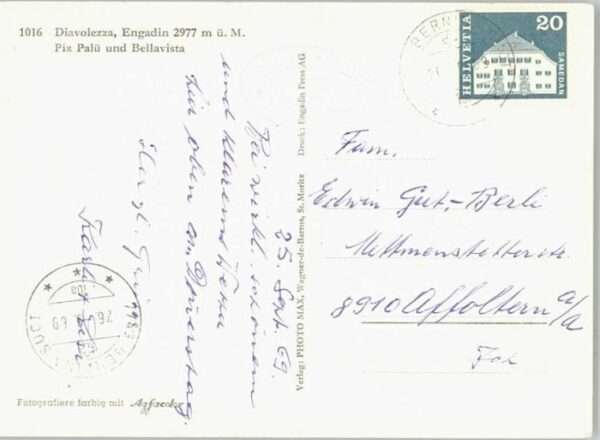 1016 Diavolezza, Engadin 2977 m ü. M.
Piz Palü und Bellavista
25. Sept. 69.
Bei wirkl. schönem
und klarem Wetter
hier oben am Donnerstag.
Fotografiere farbig mit Agfacolor
Verlag: PHOTO MAX, Wagner-de-Barros, St. Moritz
Druck: Engadin Press AG
HELVETIA
20
SAMEDAN
BERN
Fam.
Edwin Gut-Berli
Mettmenstetterstr.
8910 Affoltern a/a